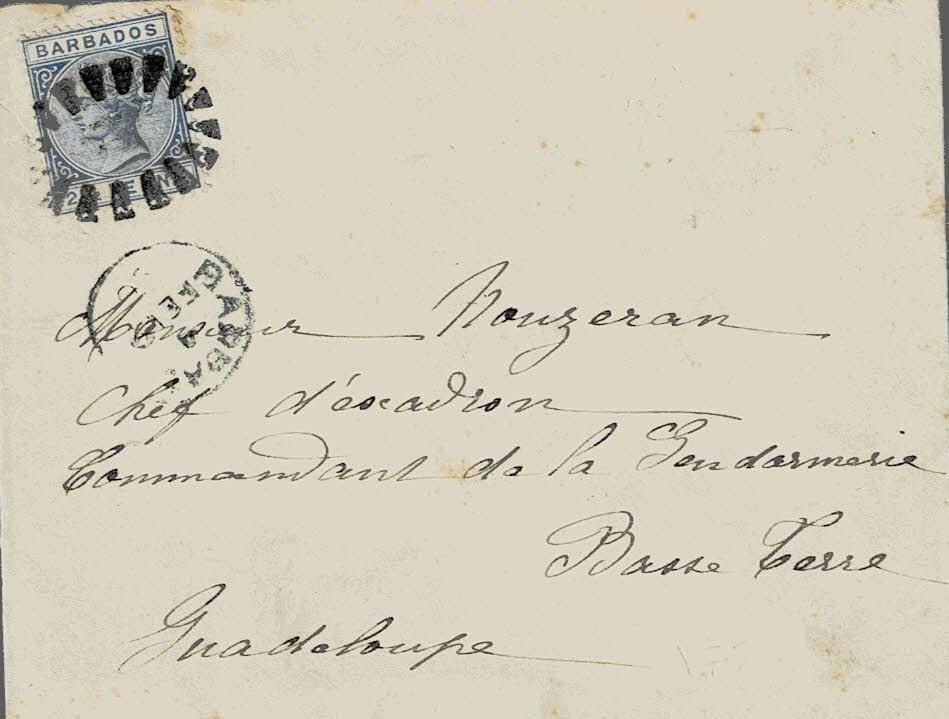 BARBADOS
BARBA
FE
Monsieur Nouzeran
Chef d'escadron
Commandant de la Gendarmerie
Basse Terre
Guadeloupe